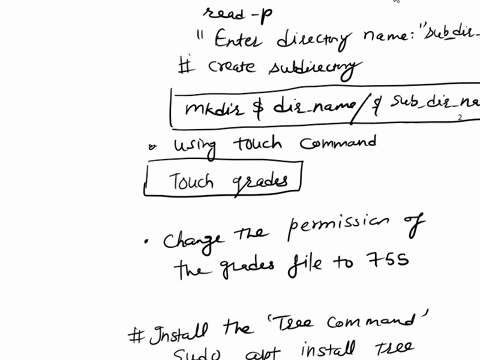 read -p
" Enter directory name: "subdir_
# create subdirectory
mkdir $ dir_name/$ sub_dir_na
• using touch command
Touch grades
• Change the permission of
the grades file to 755
# Install the 'Tree Command'
Sudo apt install tree